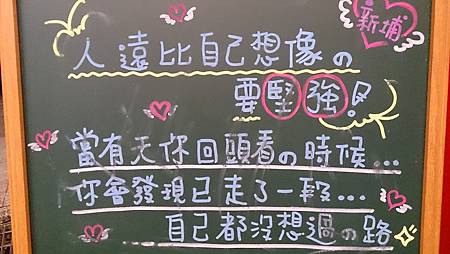 新埔
人遠比自己想像の
要堅強!
當有天你回頭看の時候...
你會發現已走了一段...
自己都沒想過の路